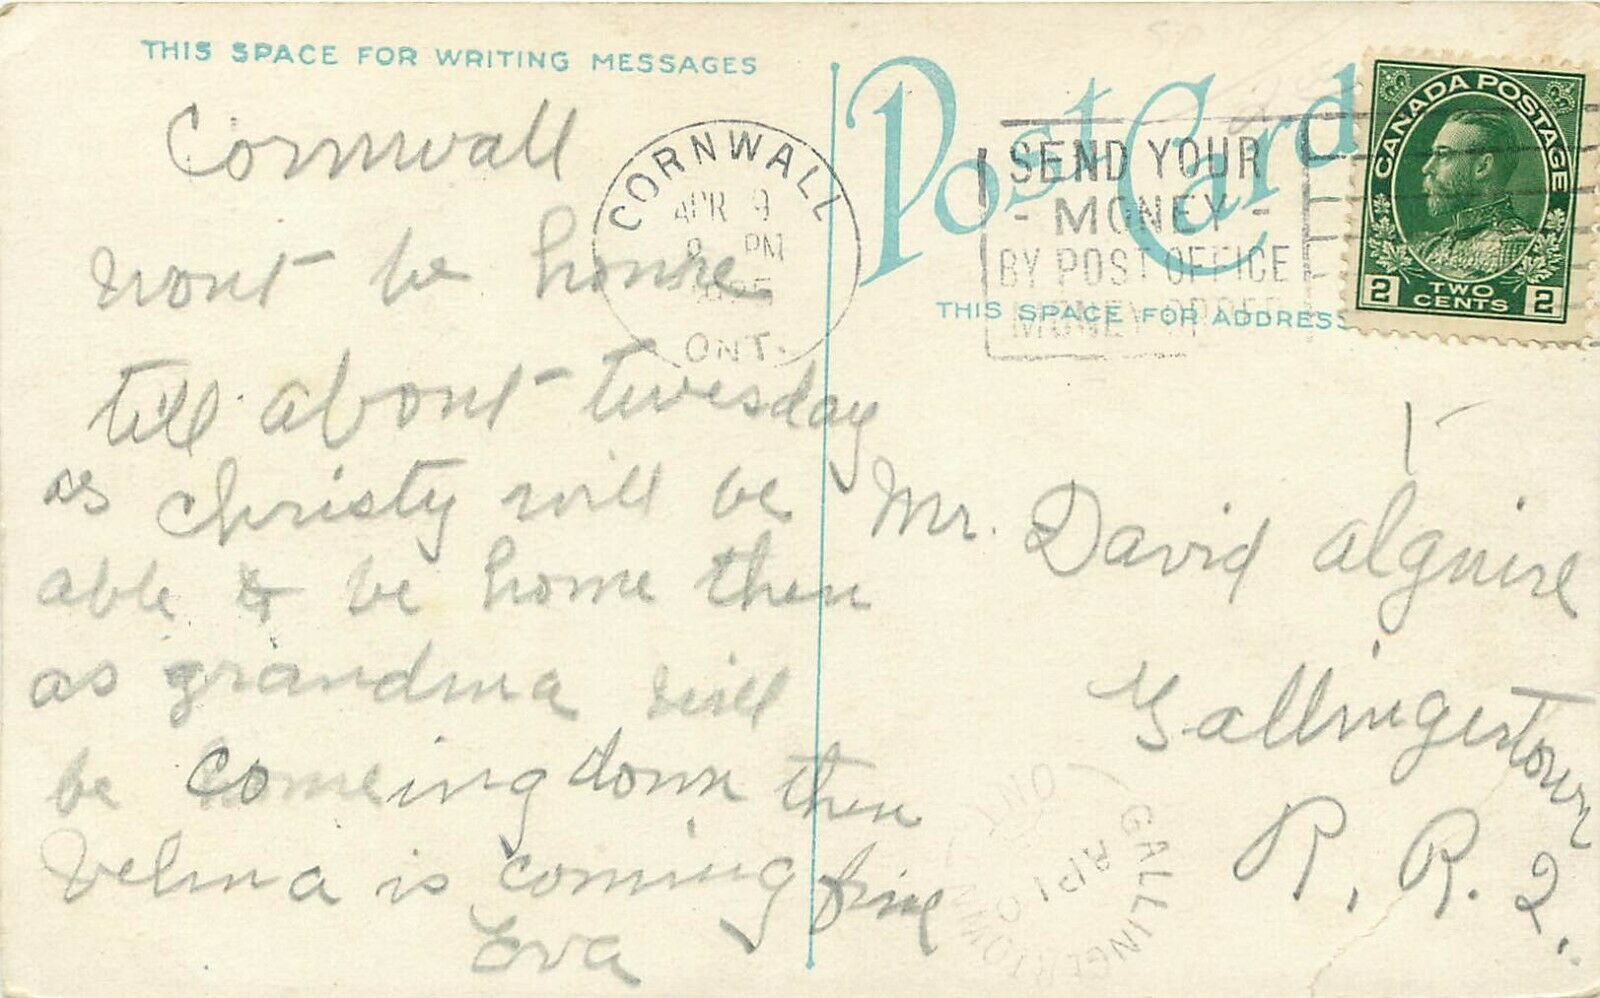 THIS SPACE FOR WRITING MESSAGES
Cornwall
wont be home
till about tuesday
as Christy will be
able & be home then
as grandma will
be coming down then
Velma is coming fine
Eva
CORNWALL
APR 9
PM
ONT.
Post Card
SEND YOUR
- MONEY -
BY POST OFFICE
MONEY ORDER
CANADA POSTAGE
2 TWO CENTS 2
THIS SPACE FOR ADDRESS
Mr. David Alguire
Gallingertown
R. R. 2.
GALLINGERTOWN
ONT